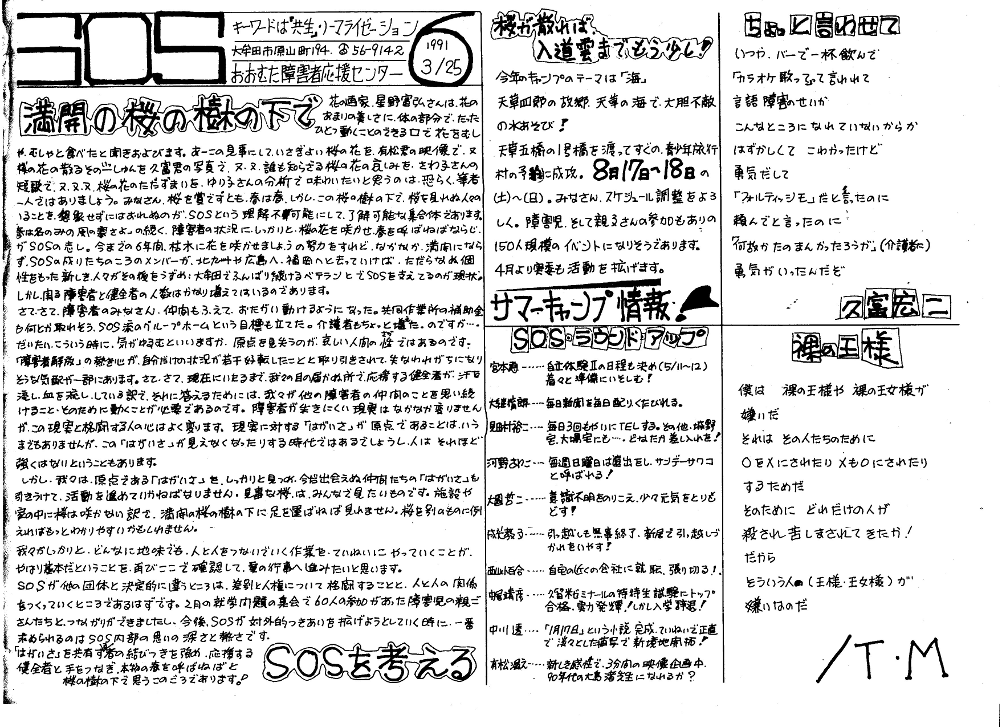 SOS
キーワードは"共生"、リーフライゼーション
大牟田市原山町194. ☎56-9142
おおむた障害者応援センター
6
1991
3/25
満開の桜の樹の下で
花の画家、星野富弘さんは、花の
あまりの美しさに、体の部分で、たった
ひとつ動くことのできる口で花をむし
ゃ、むしゃと食べたと聞きおよびます。
一人ではありましょう。みなさん、桜を賞ですとも、春は春。しかし、この桜の樹の下で、桜を見れぬ人々の
SOSという理解不可能にして、了解可能な集合体であります。
障害者の状況に、しっかりと、桜の花を咲かせ、春を呼ばねばならじ、
がSOSの志し。今までの6年間、枯木に花を咲かせましょうの努力をすれど、なかなか、満開になら
ず、SOSの成りたちのころのメンバーが、北九州や広島へ、福岡へと去っていけば、ただならぬ個
性をもった新しき人々がその後をうずめ、大牟田でふんばり続けるベテランとでSOSを支えてるが現状。
しかし、関る障害者と健全者の人数はかなり増えてはいるのであります。
さてさて、障害者のみなさん、仲間もふえて、おたがい動けるようになった。共同作業所の補助金
も何とか取れそう、SOS流のグループホームという目標も立てた。介護者もちょっと増えた。のですが…。
だいたい、こういう時に、気がゆるむといいますが、原点を見失うのが、哀しい人間の性ではあるのです。
「障害者解放」の熱き心が、自分だけの状況が若干好転したことと取り引きされて、失なわれがちになり
そうな気配が一部にあります。さて、さて、現在にいたるまで、我々の目の届かぬ所で、応援する健全者が、汗を
流し、血を流し、している訳で、それに答えるためには、我々が他の障害者の仲間のことを思い続
けること、そのために動くことが必要であるのです。障害者が生きにくい現実はなかなか変りません
が、この現実と格闘する人の心はよく変ります。現実に対する「はがいさ」が原点であることは、いう
までもありませんが、この「はがいさ」が見えなくなったりする時代ではあるでしょうし、人はそれほど
強くはないということもあります。
しかし、我々は、原点である「はがいさ」を、しっかりと見つめ、今だ出会えぬ仲間たちの「はがいさ」も
引きうけて、活動を進めていかねばなりません。見事な桜は、みんなで見たいものです。施設や
家の中に桜は咲かない訳で、満開の桜の樹の下に足を運ばねば見れません。桜を別のものに例
えればもっとわかりやすいかもしれません。
我々がしっかりと、どんなに地味でも、人と人をつないでいく作業を、ていねいに、やっていくことが、
やはり基本だということを、再びここで確認して、夏の行事へ進みたいと思います。
SOSが他の団体と決定的に違うところは、差別と人権について格闘することと、人と人の関係
をつくっていくところであるはずです。2月の就学問題の集会で60人の参加があった障害児の親ご
さんたちと、つながりができましたし、今後、SOSが対外的つきあいを拡げようとしていく時に、一番
求められるのはSOS内部の思いの深さと熱さです。
「はがいさ」を共有する者の結びつきを強め、応援する
健全者と手をつなぎ、本物の春を呼ばねばと
桜の樹の下で思うこのごろであります。
SOSを考える
桜が散れば、
入道雲までもう少し!
今年のキャンプのテーマは「海」
天草四郎の故郷、天草の海で、大胆不敵
の水あそび!
天草五橋の1号橋を渡ってすぐの、青少年旅行
村の予約に成功。8月17日〜18日の
(土)〜(日)。みなさん、スケジュール調整をよろ
しく。障害児、そして親子さんの参加もありの
150人規模のイベントになりそうであります。
4月より実委も活動を拡げます。
サマーキャンプ情報!
SOS・ラウンドアップ
自立体験Ⅱの日程も決め(5/11〜12)
着々と準備にいそしむ!
毎日新聞を毎日配りくたびれる。
毎日3回もやいにTELする。その他、
毎週日曜日は進出をし、サンデーサワコ
と呼ばれる!
意識不明をのりこえ、少々元気をとりも
どす!
引っ越しも無事終了、新居で引っ越しづ
かれをいやす!
自宅の近くの会社に就職、張り切る!
久留米ゼミナールの特待生試験にトップ
合格、実力発揮!しかし入学辞退!
中川透……「1月17日」という小説完成、ていねいで正直
で淡々とした描写で新境地開拓!
新しき感性で、3分間の映像企画中、
90年代の大島渚先生になれるか?
ちょっと言わせて
いつか、バーで一杯飲んで
「カラオケ歌って」って言われて
言語障害のせいか
こんなところになれていないからか
はずかしくて こわかったけど
勇気だして
「フォルティッシモ」だと言ったのに
頼んでと言ったのに
「何故かたのまんかったろうが」(介護者に)
勇気がいったんだぞ
久富宏二
裸の王様
僕は 裸の王様や 裸の王女様が
嫌いだ
それは その人たちのために
○を×にされたり ×も○にされたり
するためだ
そのために どれだけの人が
殺され 苦しまされてきたか!
だから
そういう人(王様・王女様)が
嫌いなのだ
/T・M